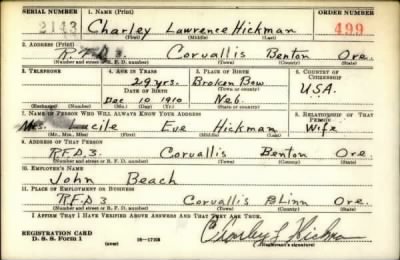 SERIAL NUMBER 1. NAME (Print) ORDER NUMBER
2143 Charley Lawrence Hickman 499
(First) (Middle) (Last)
2. ADDRESS (Print)
R.F.D 3. Corvallis Benton Ore.
(Number and street or R. F. D. number) (Town) (County) (State)
3. TELEPHONE 4. AGE IN YEARS 5. PLACE OF BIRTH 6. COUNTRY OF CITIZENSHIP
29 yrs. Broken Bow
DATE OF BIRTH (Town or county) U.S.A.
Dec 10 1910 Neb.
(Exchange) (Number) (Mo.) (Day) (Yr.) (State or country)
7. NAME OF PERSON WHO WILL ALWAYS KNOW YOUR ADDRESS 8. RELATIONSHIP OF THAT PERSON
Mrs. Lucile Eve Hickman Wife
(Mr., Mrs., Miss) (First) (Middle) (Last)
9. ADDRESS OF THAT PERSON
R.F.D.3. Corvallis Benton Ore.
(Number and street or R. F. D. number) (Town) (County) (State)
10. EMPLOYER'S NAME
John Beach
11. PLACE OF EMPLOYMENT OR BUSINESS
R.F.D 3 Corvallis Linn Ore.
(Number and street or R. F. D. number) (Town) (County) (State)
I AFFIRM THAT I HAVE VERIFIED ABOVE ANSWERS AND THAT THEY ARE TRUE.
REGISTRATION CARD
D. S. S. Form 1 (over) 16-17105 Charley L Hickman
(Registrant's signature)